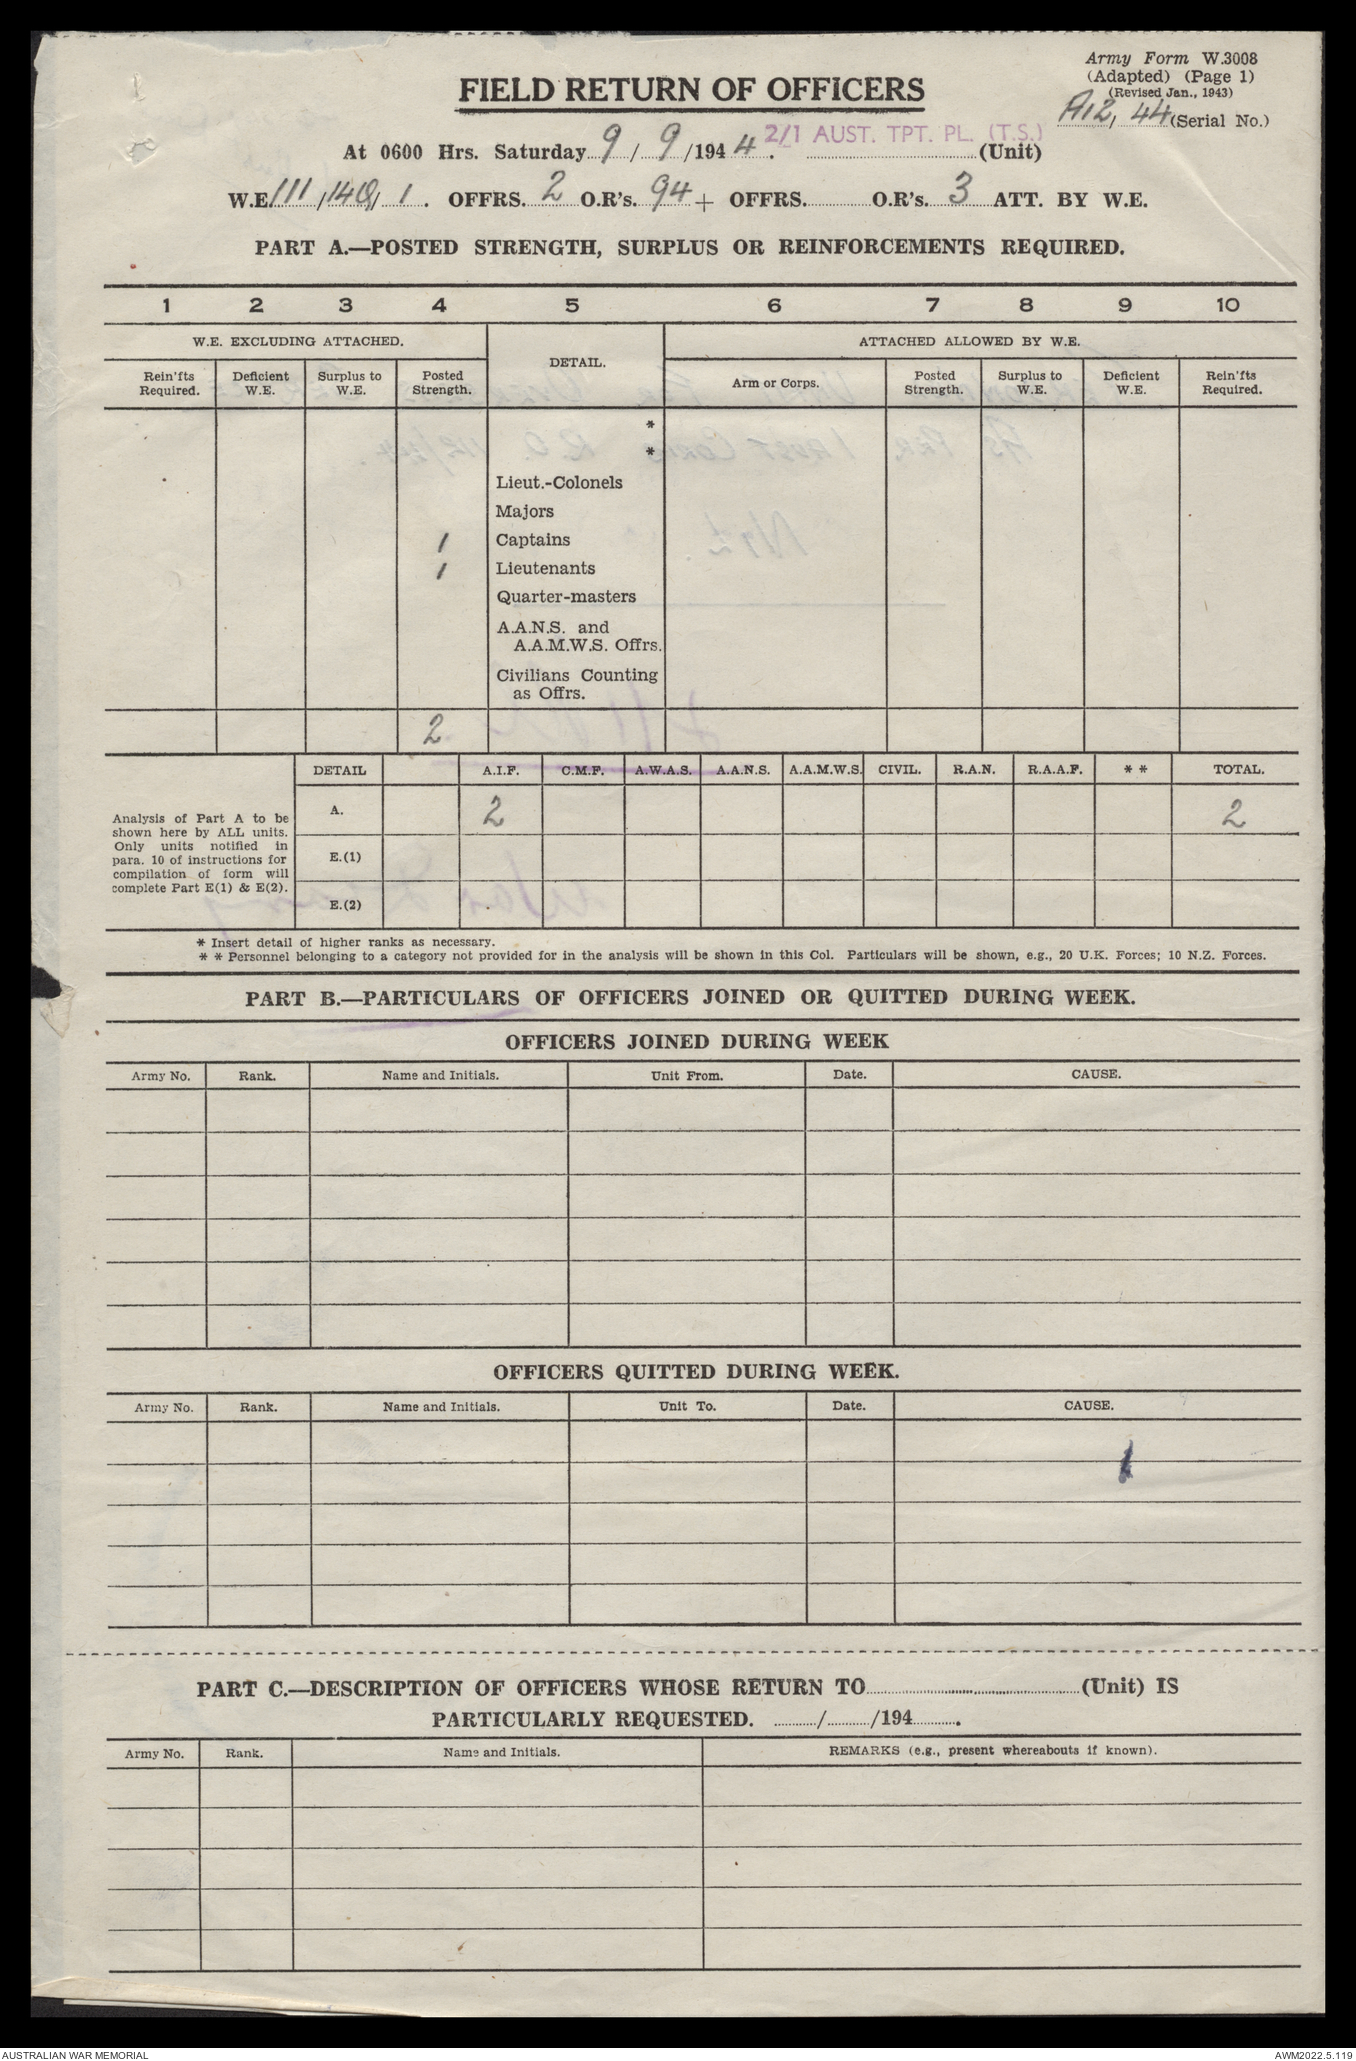 Army Form W.3008
(Adapted) (Page 1)
(Revised Jan., 1943)
A12, 44 (Serial No.)
FIELD RETURN OF OFFICERS
2/1 AUST. TPT. PL. (T.S.)
At 0600 Hrs. Saturday 9 / 9 /194 4. (Unit)
W.E 111 /140/ 1 . OFFRS. 2 O.R's. 94 + OFFRS. O.R's. 3 ATT. BY W.E.
PART A.—POSTED STRENGTH, SURPLUS OR REINFORCEMENTS REQUIRED.
1 2 3 4 5 6 7 8 9 10
W.E. EXCLUDING ATTACHED. DETAIL. ATTACHED ALLOWED BY W.E.
Rein'fts Required. Deficient W.E. Surplus to W.E. Posted Strength. Arm or Corps. Posted Strength. Surplus to W.E. Deficient W.E. Rein'fts Required.
*
*
Lieut.-Colonels
Majors
1 Captains
1 Lieutenants
Quarter-masters
A.A.N.S. and
A.A.M.W.S. Offrs.
Civilians Counting
as Offrs.
2
DETAIL A.I.F. C.M.F. A.W.A.S. A.A.N.S. A.A.M.W.S. CIVIL. R.A.N. R.A.A.F. * * TOTAL.
A. 2 2
Analysis of Part A to be
shown here by ALL units.
Only units notified in
para. 10 of instructions for
compilation of form will
complete Part E(1) & E(2).
E.(1)
E.(2)
* Insert detail of higher ranks as necessary.
* * Personnel belonging to a category not provided for in the analysis will be shown in this Col. Particulars will be shown, e.g., 20 U.K. Forces; 10 N.Z. Forces.
PART B.—PARTICULARS OF OFFICERS JOINED OR QUITTED DURING WEEK.
OFFICERS JOINED DURING WEEK
Army No. Rank. Name and Initials. Unit From. Date. CAUSE.
OFFICERS QUITTED DURING WEEK.
Army No. Rank. Name and Initials. Unit To. Date. CAUSE.
1
PART C.—DESCRIPTION OF OFFICERS WHOSE RETURN TO (Unit) IS
PARTICULARLY REQUESTED. / /194 .
Army No. Rank. Name and Initials. REMARKS (e.g., present whereabouts if known).
AUSTRALIAN WAR MEMORIAL AWM2022.5.119